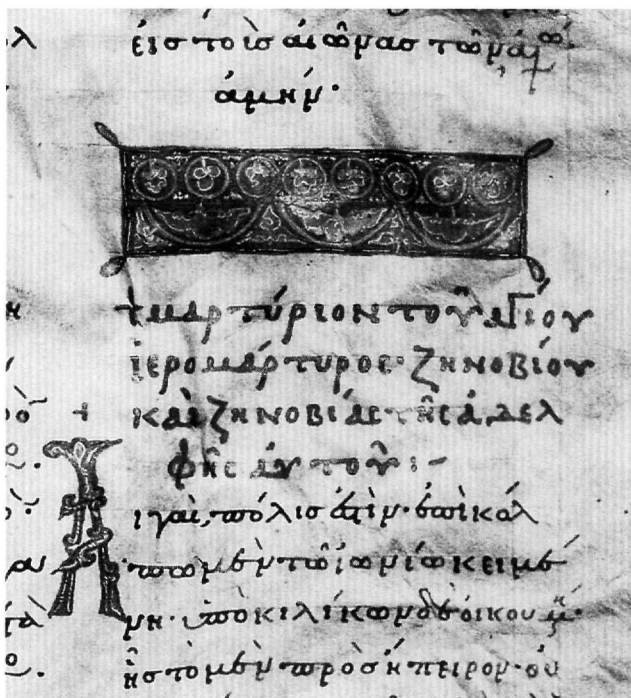 εἰς τοὺς αἰῶνας τῶν αἰώ
ἀμήν·
+ μαρτύριον τοῦ ἁγίου
ἱερομάρτυρος· ζηνοβίου
καὶ ζηνοβίας τῆς ἀδελ
φῆς αὐτοῦ :-
Αἰγαὶ, πόλις ἐστὶν· ἐπὶ κόλ
πω μὲν τῶ ἰωνίω κειμέ
νη· ὑπὸ κιλίκων δὲ οἰκουμ
ῆς τὸ μὲν πρὸς ἤπειρον·